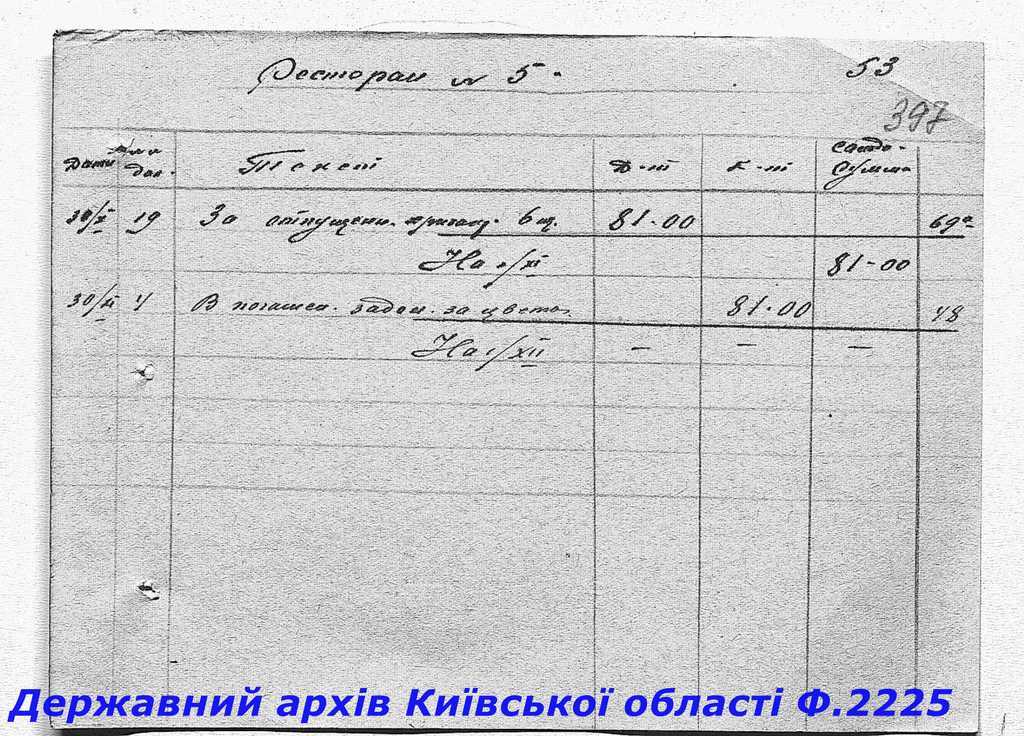 Ресторан № 5 - 53
397
Дата док. Текст Д-т К-т Сальдо- сумма
30/X 19 За отпущенн. 6 щ. 81-00 69а
На 1/XI 81-00
30/XI 4 В погашен. задол. за цветы 81-00 48
На 1/XII — — —
Державний архів Київської області Ф.2225